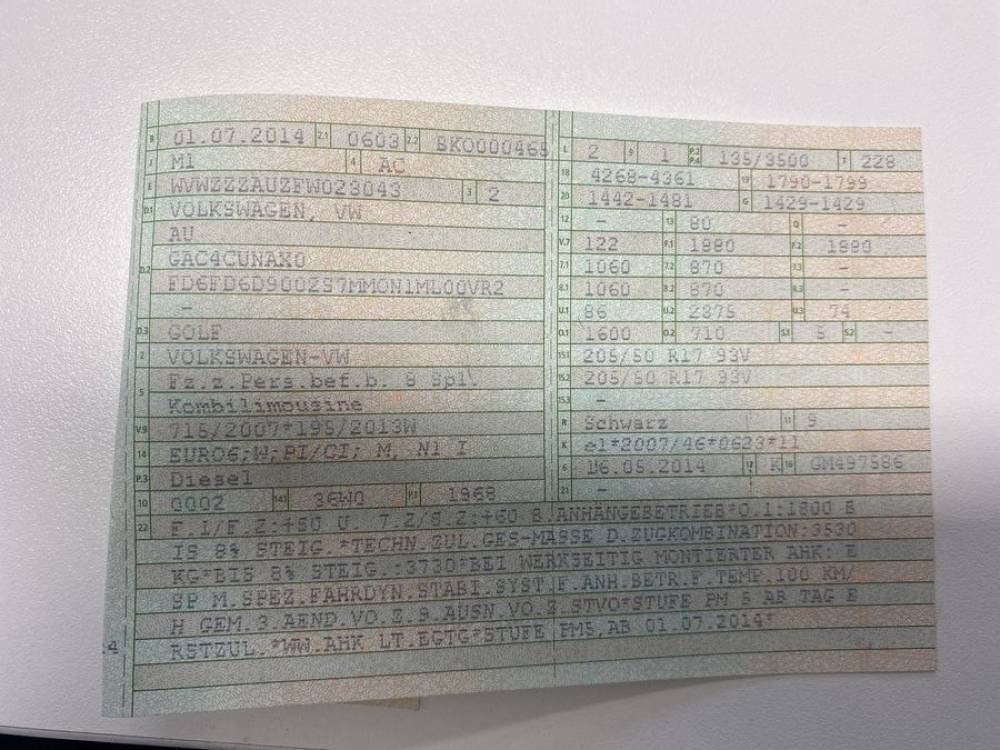 B 01.07.2014 2.1 0603 2.2 BKO000465
J M1 4 AC
E WVWZZZAUZFW028043 3 2
D.1 VOLKSWAGEN, VW
AU
D.2 GAC4CUNAX0
FD6FD6D900ZS7MMON1ML00VR2
-
D.3 GOLF
2 VOLKSWAGEN-VW
5 Fz.z.Pers.bef.b. 8 Spl.
Kombilimousine
V.9 715/2007*195/2013W
14 EURO6;W;PI/CI; M, N1 I
P.3 Diesel
10 0002 14.1 36W0 P.1 1968
L 2 9 1 P.2 P.4 135/3500 T 228
18 4268-4361 19 1790-1799
20 1442-1481 G 1429-1429
12 - 13 80 Q -
V.7 122 F.1 1880 F.2 1880
7.1 1060 7.2 870 7.3 -
8.1 1060 8.2 870 8.3 -
U.1 86 U.2 2875 U.3 74
O.1 1600 O.2 710 S.1 5 S.2 -
15.1 205/50 R17 93V
15.2 205/50 R17 93V
15.3 -
R Schwarz 11 9
K e1*2007/46*0623*11
6 16.05.2014 17 K 16 GM497586
21 -
22 F.1/F.2:+50 U. 7.2/8.2:+60 B.ANHÄNGEBETRIEB*O.1:1800 B
IS 8% STEIG.*TECHN.ZUL.GES-MASSE D.ZUGKOMBINATION:3530
KG*BIS 8% STEIG.:3730*BEI WERKSEITIG MONTIERTER AHK: E
SP M.SPEZ.FAHRDYN.STABI.SYST.F.ANH.BETR.F.TEMP.100 KM/
H GEM.3.AEND.VO.Z.9.AUSN.VO.Z.STVO*STUFE PM 5 AB TAG E
RSTZUL.*WW.AHK LT.EGTG*STUFE PM5,AB 01.07.2014*